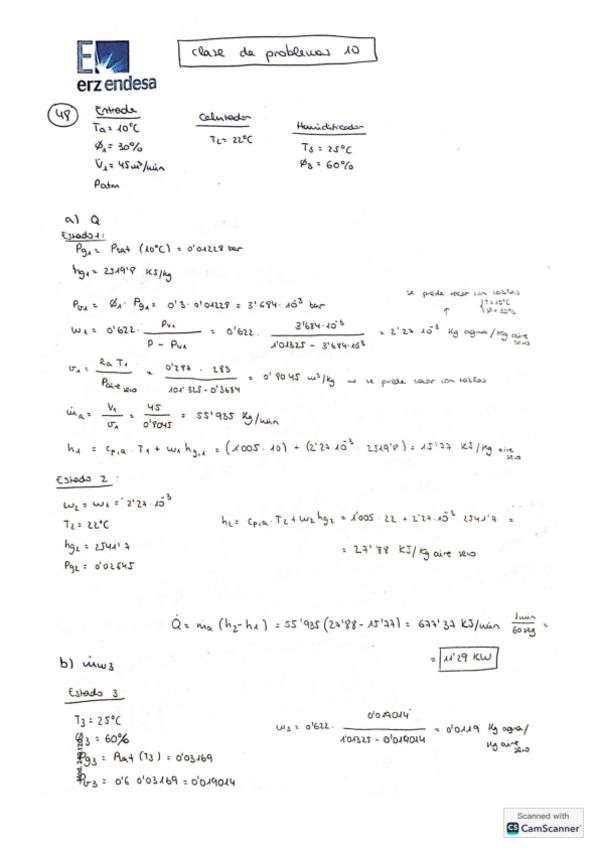 erz endesa
Clase de problemas 10
48
Entrada
Ta = 10°C
Ø1 = 30%
V̇1 = 45 m³/min
Patm
Calentador
T2 = 22°C
Humidificador
T3 = 25°C
Ø3 = 60%
a) Q
Estado 1:
Pg1 = Psat (10°C) = 0'01228 bar
hg1 = 2519'8 KJ/kg
Pv1 = Ø1 · Pg1 = 0'3 · 0'01228 = 3'684·10⁻³ bar
se puede sacar con tablas
w1 = 0'622 · Pv1 / (P - Pv1) = 0'622 · 3'684·10⁻³ / (1'01325 - 3'684·10⁻³) = 2'27·10⁻³ Kg agua/Kg aire seco
v1 = Ra T1 / Paire seco = 0'287 · 283 / (101'325 - 0'3684) = 0'8045 m³/kg → se puede sacar con tablas
ṁa = V̇1 / v1 = 45 / 0'8045 = 55'935 Kg/min
h1 = cp,a · T1 + w1 hg,1 = (1'005 · 10) + (2'27·10⁻³ · 2519'8) = 15'77 KJ/Kg aire seco
Estado 2:
w2 = w1 = 2'27·10⁻³
T2 = 22°C
hg2 = 2541'7
Pg2 = 0'02645
h2 = cp,a · T2 + w2 hg2 = 1'005 · 22 + 2'27·10⁻³ · 2541'7 =
= 27'88 KJ/Kg aire seco
Q̇ = ṁa (h2 - h1) = 55'935 (27'88 - 15'77) = 677'37 KJ/min · 1min / 60 =
= 11'29 KW
b) ṁw3
Estado 3
T3 = 25°C
Ø3 = 60%
Pg3 = Psat (T3) = 0'03169
Pv3 = 0'6 · 0'03169 = 0'019014
w3 = 0'622 · 0'019014 / (1'01325 - 0'019014) = 0'0119 Kg agua/Kg aire seco
Scanned with
CS CamScanner